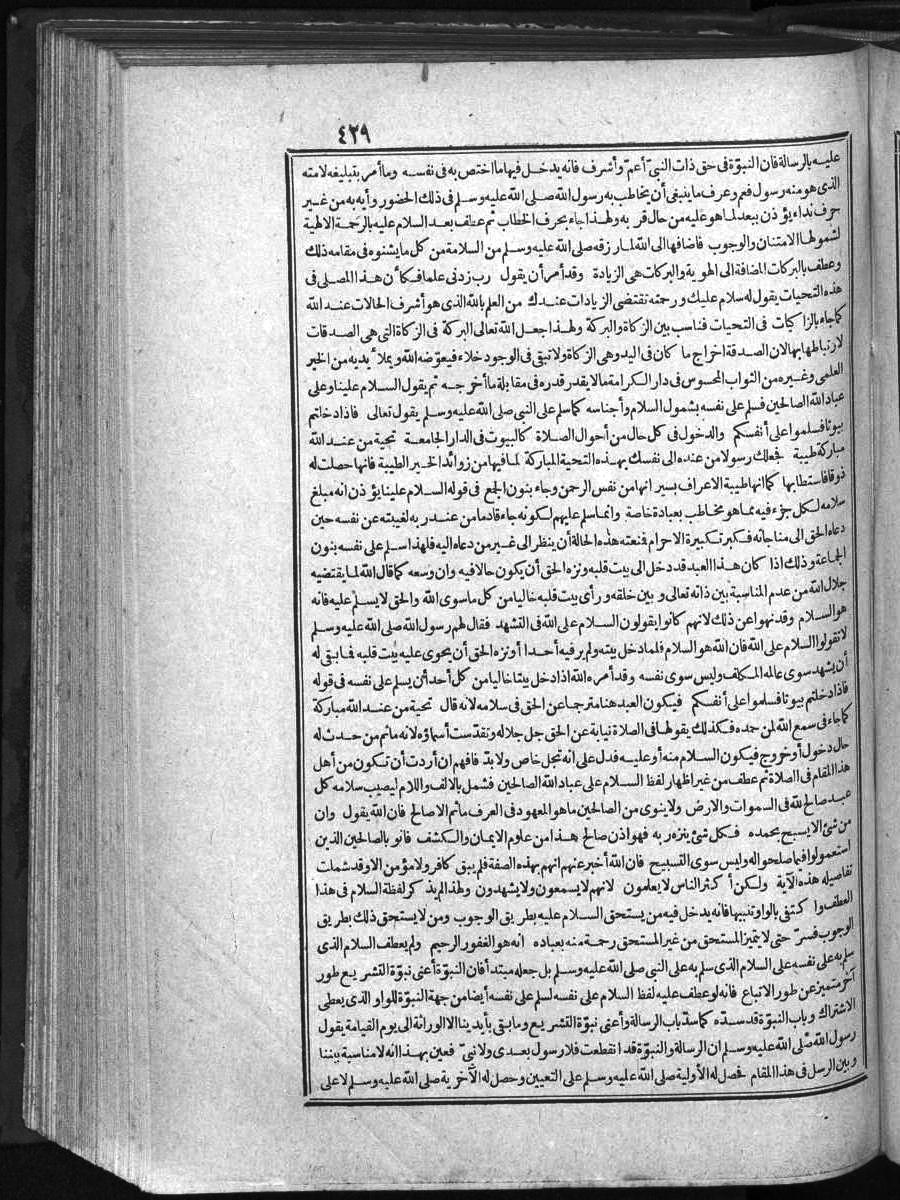 ٤٢٩
عليه بالرسالة فان النبوّة فى حق ذات النبىّ أعم وأشرف فانه يدخل فيها ما اختص به فى نفسه وما أمر بتبليغه لامته
الذى هو منه رسول فعم وعرف ما ينبغى أن يخاطب به رسول الله صلى الله عليه وسلم فى ذلك الحضور وأيه به من غير
حرف نداء يؤذن ببعد لما هو عليه من حال قربه ولهذا جاء بحرف الخطاب ثم عطف بعد السلام عليه بالرحمة الالهية
لشمولها الامتنان والوجوب فاضافها الى الله لما رزقه صلى الله عليه وسلم من السلامة من كل ما يشنوه فى مقامه ذلك
وعطف بالبركات المضافة الى الهوية والبركات هى الزيادة وقد أمر أن يقول رب زدنى علما فكأن هذا المصلى فى
هذه التحيات يقول له سلام عليك ورحمته تقتضى الزيادات عندك من العلم بالله الذى هو أشرف الحالات عند الله
كما جاء بالزاكيات فى التحيات فناسب بين الزكاة والبركة ولهذا جعل الله تعالى البركة فى الزكاة التى هى الصدقات
لارتباطها بها لان الصدقة اخراج ما كان فى اليد وهى الزكاة ولا تبقى فى الوجود خلاء فيعوّضه الله ويملأ يديه من الخير
العلمى وغيره من الثواب المحسوس فى دار الكرامة ما لا يقدر قدره فى مقابلة ما أخرجه ثم يقول السلام علينا وعلى
عباد الله الصالحين فسلم على نفسه بشمول السلام وأجناسه كما سلم على النبى صلى الله عليه وسلم يقول تعالى فاذا دخلتم
بيوتا فسلموا على أنفسكم والدخول فى كل حال من أحوال الصلاة كالبيوت فى الدار الجامعة تحية من عند الله
مباركة طيبة فجعلك رسولا من عنده الى نفسك بهذه التحية المباركة لما فيها من زوائد الخير الطيبة فانها حصلت له
ذوقا فاستطابها كما انها طيبة الاعراف بسيرانها من نفس الرحمن وجاء بنون الجمع فى قوله السلام علينا يؤذن انه مبلغ
سلامه لكل جزء فيه مما هو مخاطب بعبادة خاصة وانما سلم عليهم لكونه جاء قادما من عند ربه لغيبته عن نفسه حين
دعاه الحق الى مناجاته فكبر تكبيرة الاحرام فمنعته هذه الحالة أن ينظر الى غير من دعاه اليه فلهذا سلم على نفسه بنون
الجماعة وذلك اذا كان هذا العبد قد دخل الى بيت قلبه ونزه الحق أن يكون حالا فيه وان وسعه كما قال الله لما يقتضيه
جلال الله من عدم المناسبة بين ذاته تعالى وبين خلقه ورأى بيت قلبه خاليا من كل ما سوى الله والحق لا يسلم عليه فانه
هو السلام وقد نهوا عن ذلك لانهم كانوا يقولون السلام على الله فى التشهد فقال لهم رسول الله صلى الله عليه وسلم
لا تقولوا السلام على الله فان الله هو السلام فلما دخل بيته ولم ير فيه أحدا أو نزه الحق أن يحوى عليه بيت قلبه فما بقى له
أن يشهد سوى عالمه المكلف وليس سوى نفسه وقد أمره الله اذا دخل بيتا خاليا من كل أحد أن يسلم على نفسه فى قوله
فاذا دخلتم بيوتا فسلموا على أنفسكم فيكون العبد هنا مترجما عن الحق فى سلامه لانه قال تحية من عند الله مباركة
كما جاء فى سمع الله لمن حمده فكذلك يقولها فى الصلاة نيابة عن الحق جل جلاله وتقدّست أسماؤه لانه ما ثم من حدث له
حال دخول أو خروج فيكون السلام منه أو عليه فدل على انه تجل خاص ولا بدّ فافهم ان أردت أن تكون من أهل
هذا المقام فى الصلاة ثم عطف من غير اظهار لفظ السلام على عباد الله الصالحين فشمل بالالف واللام ليصيب سلامه كل
عبد صالح لله فى السموات والارض ولا ينوى من الصالحين ما هو المعهود فى العرف ما ثم الا صالح فان الله يقول وان
من شئ الا يسبح بحمده فكل شئ ينزه ربه فهو اذن صالح هذا من علوم الايمان والكشف فانو بالصالحين الذين
استعملوا فيما صلحوا له وليس سوى التسبيح فان الله أخبر عنهم انهم بهذه الصفة فلم يبق كافر ولا مؤمن الا وقد شملت
تفاصيله هذه الآية ولكن أكثر الناس لا يعلمون لانهم لا يسمعون ولا يشهدون ولهذا لم يذكر لفظة السلام فى هذا
العطف واكتفى بالواو تنبيها فانه يدخل فيه من يستحق السلام عليه بطريق الوجوب ومن لا يستحق ذلك بطريق
الوجوب فسرّ حتى لا يتميز المستحق من غير المستحق رحمة منه بعباده انه هو الغفور الرحيم ولم يعطف السلام الذى
سلم به على نفسه على السلام الذى سلم به على النبى صلى الله عليه وسلم بل جعله مبتدأ فان النبوّة أعنى نبوّة التشريع طور
آخر متميز عن طور الاتباع فانه لو عطف عليه لفظ السلام على نفسه لسلم على نفسه أيضا من جهة النبوّة للواو الذى يعطى
الاشتراك وباب النبوّة قد سدّه كما سدّ باب الرسالة وأعنى نبوّة التشريع وما بقى بأيدينا الا الوراثة الى يوم القيامة يقول
رسول الله صلى الله عليه وسلم ان الرسالة والنبوّة قد انقطعت فلا رسول بعدى ولا نبىّ فعين بهذا انه لا مناسبة بيننا
وبين الرسل فى هذا المقام فحصل له الأولية صلى الله عليه وسلم على التعيين وحصل له الآخرية صلى الله عليه وسلم لا على